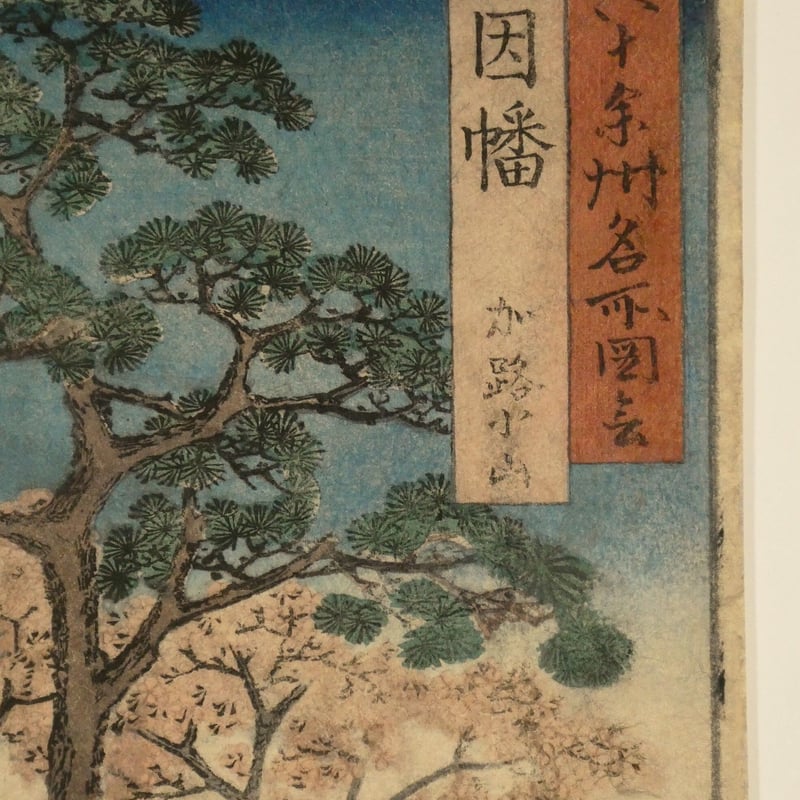 六十余州名所図会
因幡
加路小山